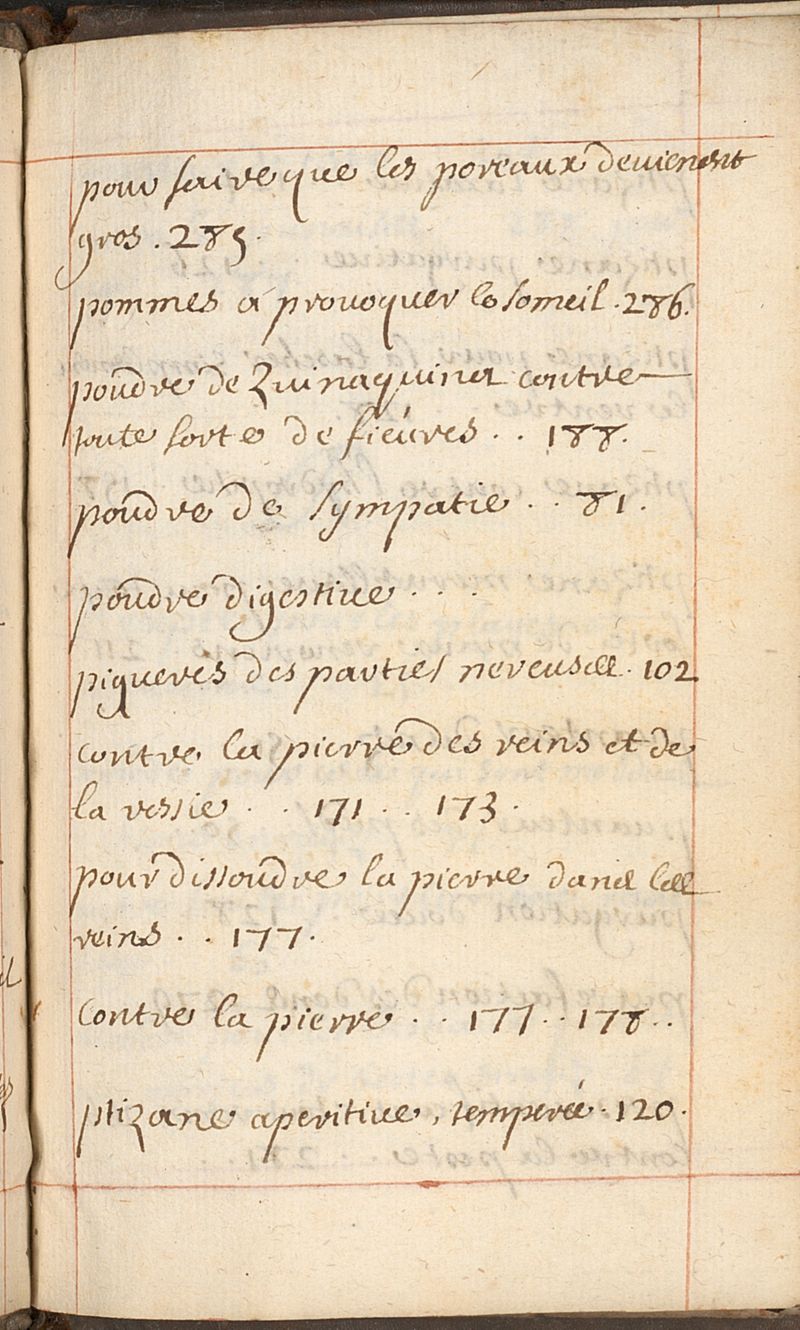 pour faire que les poreaux devienent
gros . 285.
pommes a provoquer le someil . 286.
poudre de Quinaquina contre
toute sorte de fiévres . . 188.
poudre de sympatie . . 81.
poudre digestive . . .
piqueres des parties nerveuses . 102
contre la pierre des reins et de
la vessie . . 171 . . 173.
pour dissoudre la pierre dans les
reins . . 177.
contre la pierre . . 177 . . 178 . .
ptizane aperitive, temperée . 120.